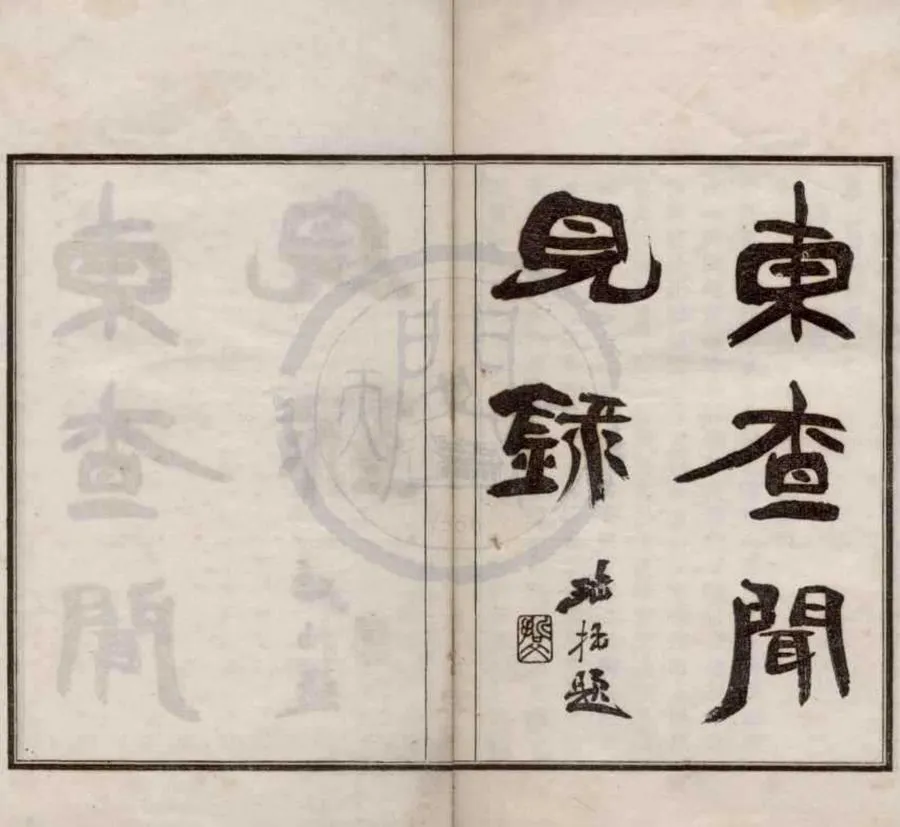 東查聞
見録
題